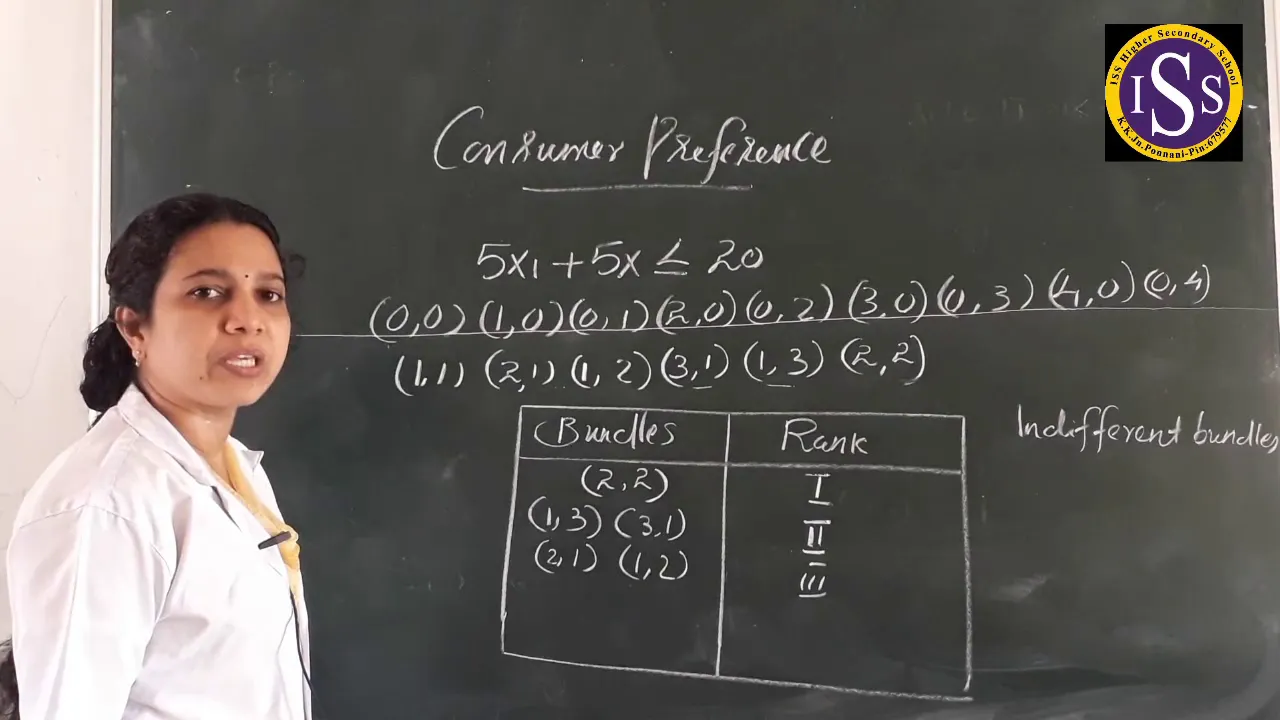 ISS Higher Secondary School
ISS
K.K.Jn.Ponnani-Pin:679577
Consumer Preference
5x₁ + 5x ≤ 20
(0,0) (1,0) (0,1) (2,0) (0,2) (3,0) (0,3) (4,0) (0,4)
(1,1) (2,1) (1,2) (3,1) (1,3) (2,2)
Bundles Rank
(2,2) I
(1,3) (3,1) II
(2,1) (1,2) III
Indifferent bundles